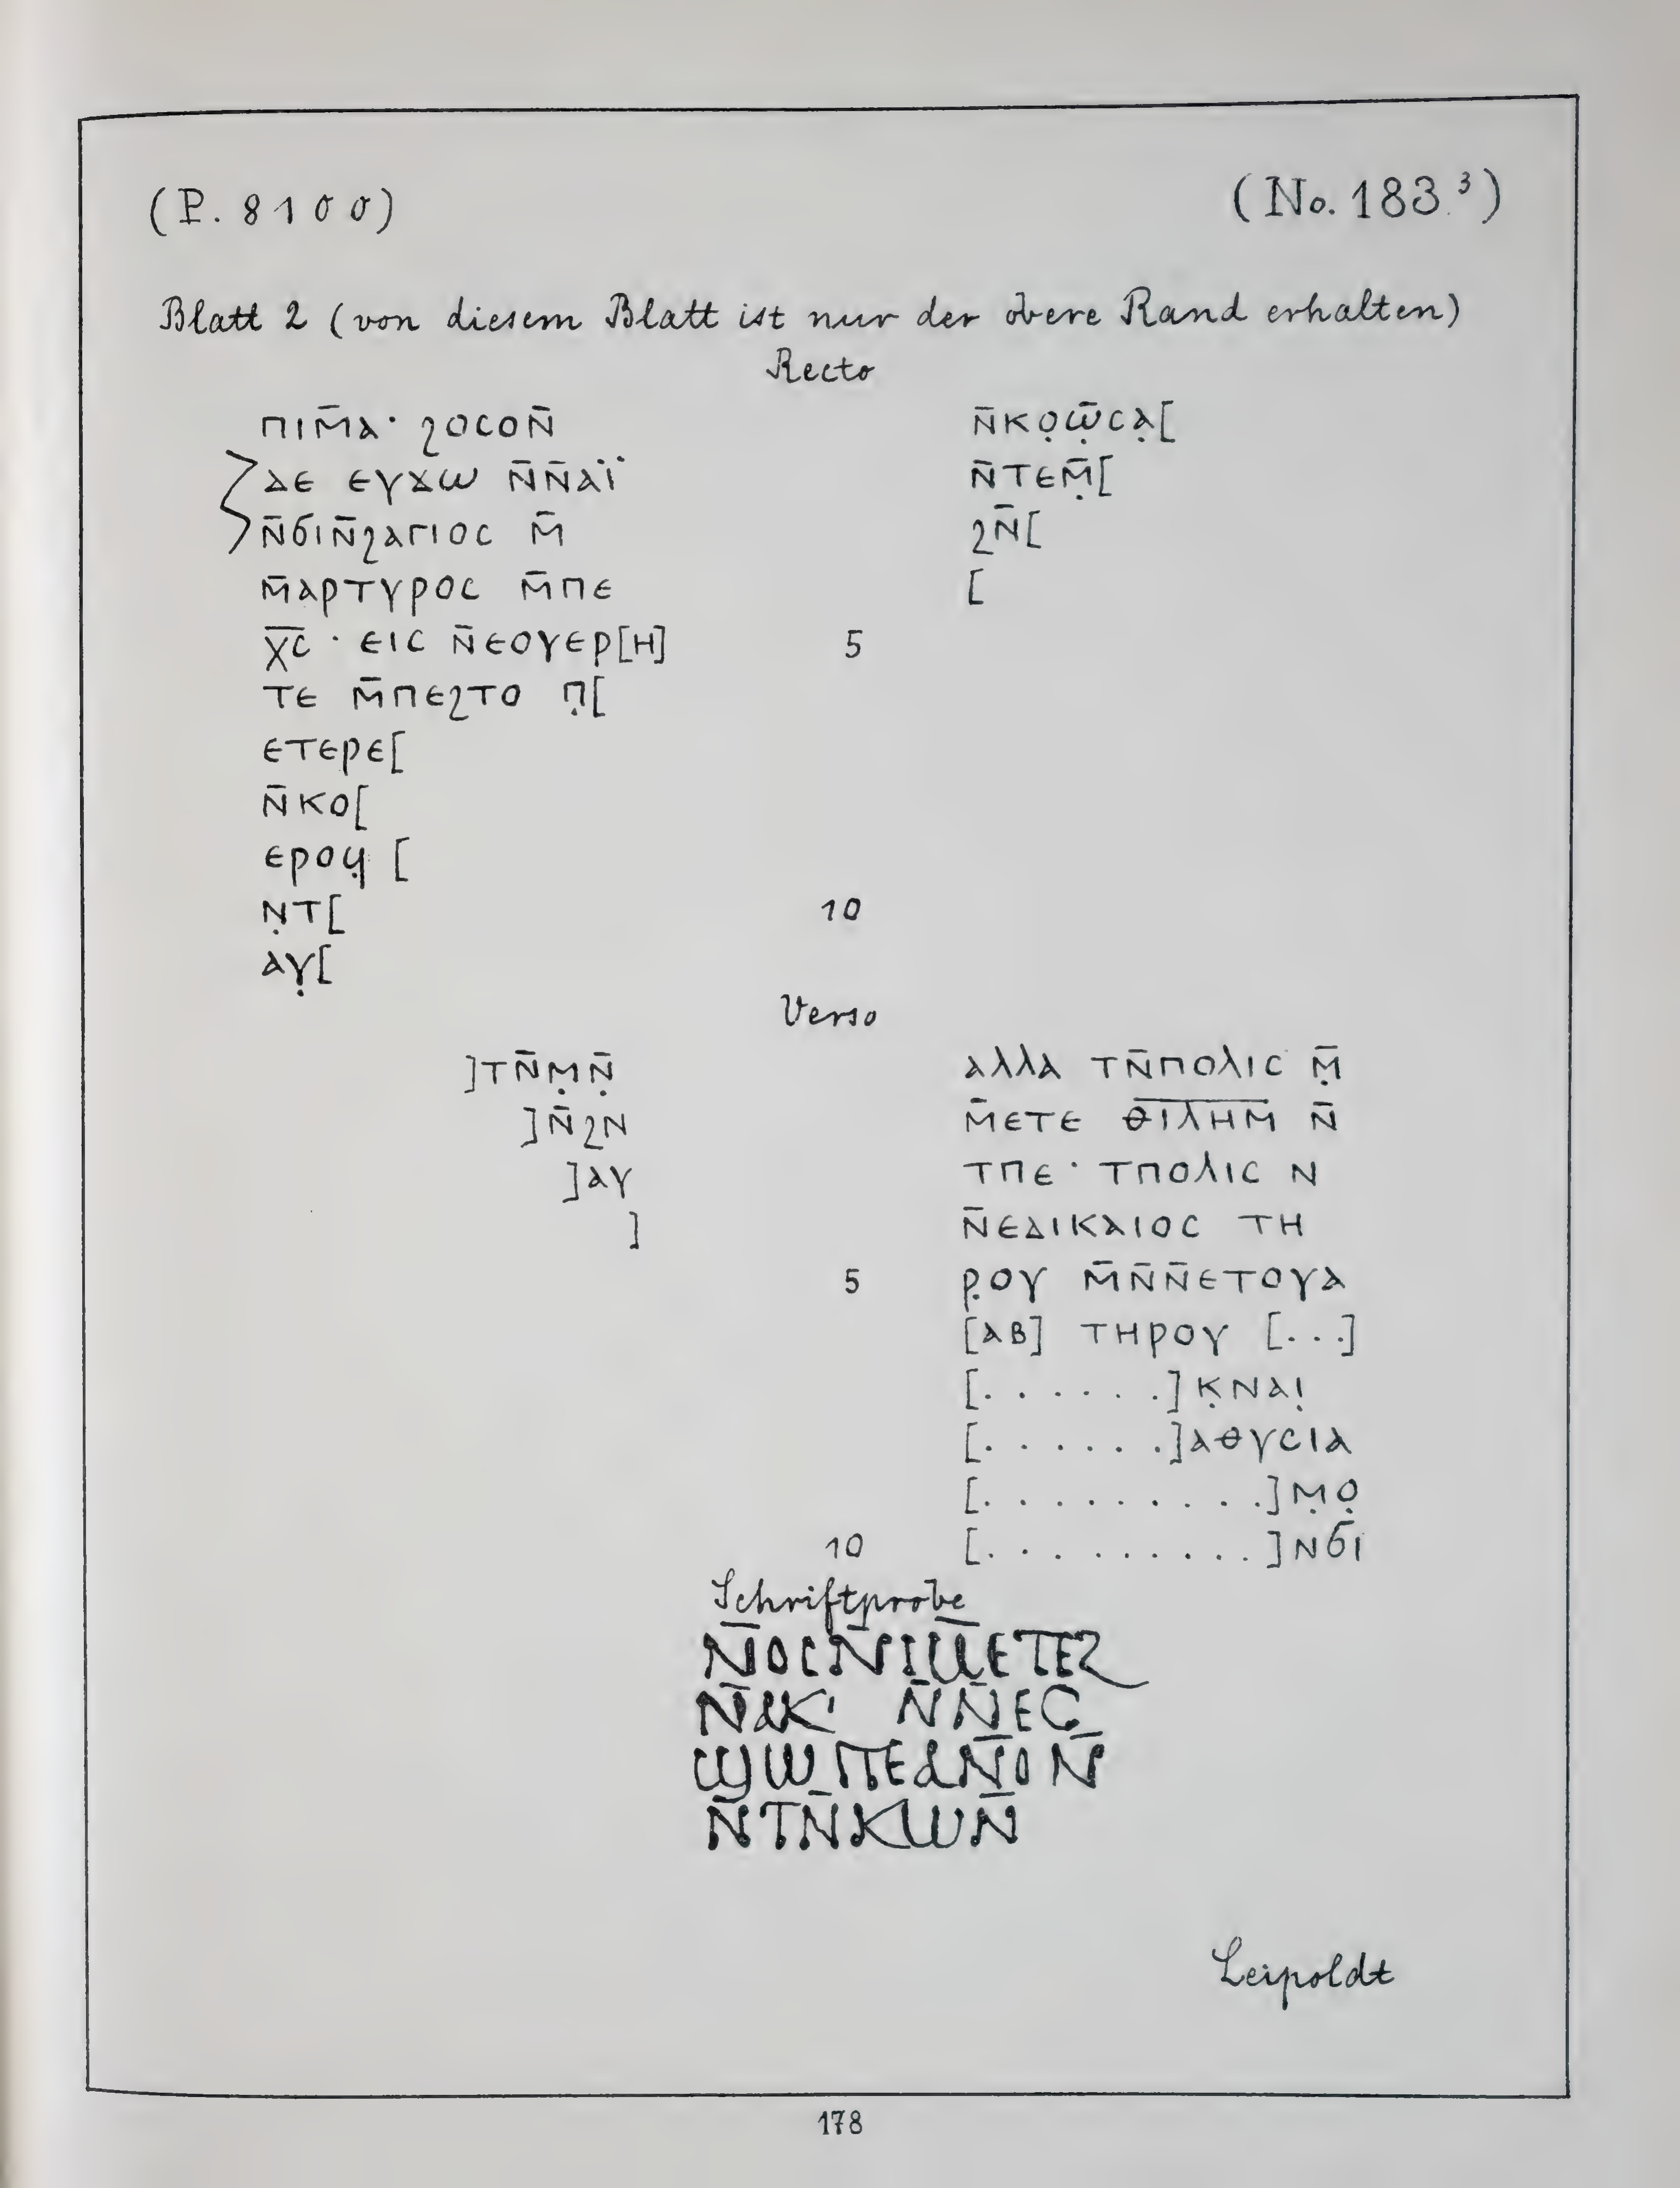 (P. 8100)
(No. 183³)
Blatt 2 (von diesem Blatt ist nur der obere Rand erhalten)
Recto
ⲡⲓⲙ̄ⲁ· ϩⲟⲥⲟⲛ̄
ⲇⲉ ⲉⲩϫⲱ ⲛ̄ⲛ̄ⲁⲓ̈
ⲛ̄ϭⲓⲛ̄ϩⲁⲅⲓⲟⲥ ⲙ̄
ⲙ̄ⲁⲣⲧⲩⲣⲟⲥ ⲙ̄ⲡⲉ
ⲭ̅ⲥ̅ · ⲉⲓⲥ ⲛ̄ⲉⲟⲩⲉⲣ[ⲏ]
5
ⲧⲉ ⲙ̄ⲡⲉϩⲧⲟ ⲡ̣[
ⲉⲧⲉⲣⲉ[
ⲛ̄ⲕⲟ[
ⲉⲣⲟϥ̣ [
ⲛ̣ⲧ[
10
ⲁⲩ̣[
ⲛ̄ⲕⲟ̣ⲱ̣̄ⲥⲁ̣[
ⲛ̄ⲧⲉⲙ̣̄[
ϩⲛ̄[
[
Verso
]ⲧⲛ̄ⲙ̣ⲛ̣̄
]ⲛ̄ϩⲛ
]ⲁⲩ
]
ⲁⲗⲗⲁ ⲧⲛ̄ⲡⲟⲗⲓⲥ ⲙ̣̄
ⲙ̄ⲉⲧⲉ ⲑ̅ⲓ̅ⲗ̅ⲏ̅ⲙ̅ ⲛ̄
ⲧⲡⲉ· ⲧⲡⲟⲗⲓⲥ ⲛ
ⲛ̄ⲉⲇⲓⲕⲁⲓⲟⲥ ⲧⲏ
5 ⲣ̣ⲟⲩ ⲙ̄ⲛ̄ⲛ̄ⲉⲧⲟⲩⲁ
[ⲁⲃ] ⲧⲏⲣⲟⲩ [...]
[. . . . . .] ⲕ̣ⲛⲁⲓ̣
[. . . . . .]ⲁⲑⲩⲥⲓⲁ
[. . . . . . . . .]ⲙ̣ⲟ̣
10 [. . . . . . . . .]ⲛϭⲓ
Schriftprobe
ⲛ̄ⲟⲥⲛ̄ⲓⲙ̄ⲉⲧⲉϩ
ⲛ̄ⲁⲕ' ⲛ̄ⲛ̄ⲉⲥ
ϣⲱⲡⲉⲁⲛ̄ⲟⲛ̄
ⲛ̄ⲧⲛ̄ⲕⲱⲛ̄
Leipoldt
178